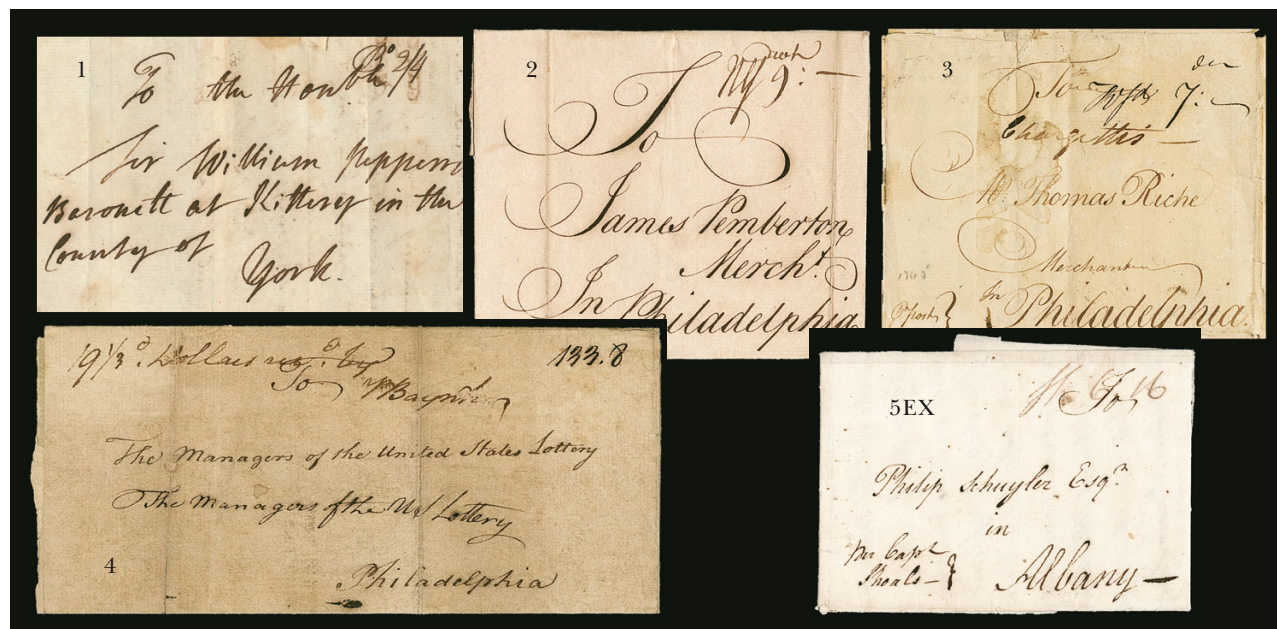 1
Bo 2/4
To the Honble
Sir William Pepperre
Baronett at Kittery in the
County of
York.
2
dwt
NY 9: —
To
James Pemberton
Mercht.
In Philadelphia
3
dw
To 7:
Mr. Thomas Riche
Merchant
In
Philadelphia.
4
19 1/3 d. Dollars
133.8
To
The Managers of the United States Lottery
The Managers of the US Lottery
Philadelphia
5EX
To 16
Philip Schuyler Esqr.
in
per Capt
Albany —